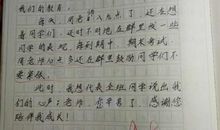 我们的教育，
每天，周老师八九点了，还在想
着同学们，还时不时地在群里找一些
同学的表现，每到期中、期末考试，
周老师八点多还在群里鼓励同学们不
要紧张。
此时，我想代表全班同学说出我
们的心声：老师，您辛苦了！感谢您
陪伴我成长！